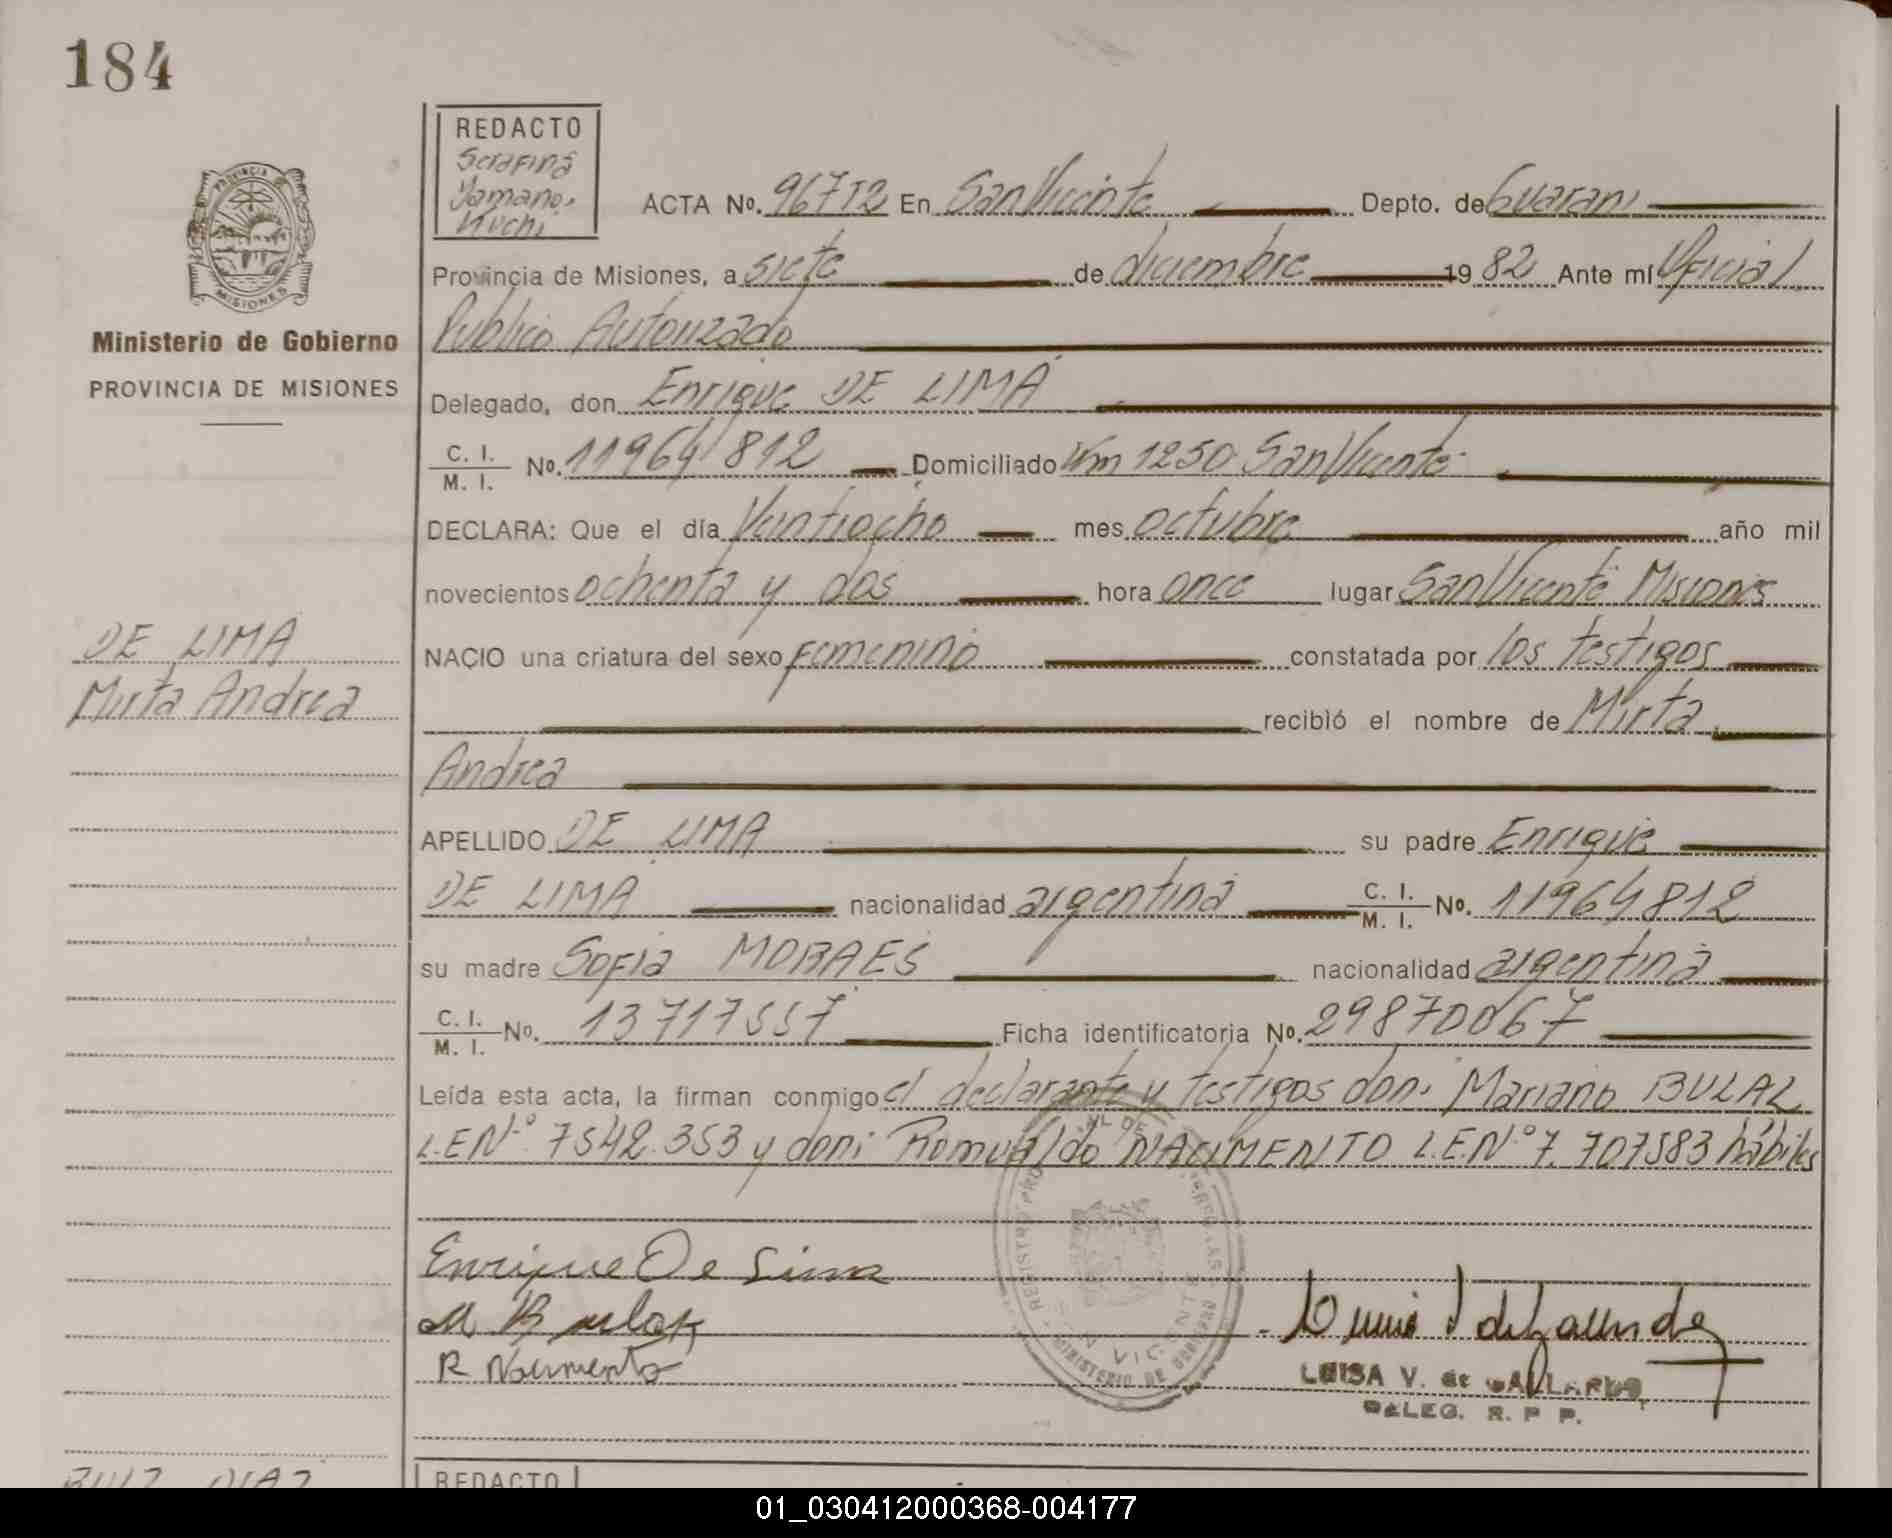 184
PROVINCIA DE
MISIONES
Ministerio de Gobierno
PROVINCIA DE MISIONES
DE LIMA
Mirta Andrea
REDACTO
Serafina
Yamano.
Kuchi
ACTA No. 96712 En San Vicente Depto. de Guarani
Provincia de Misiones, a siete de diciembre 1982 Ante mí Oficial
Publico Autorizado
Delegado, don Enrique DE LIMA
C. I.
M. I. No. 11964812 Domiciliado Km 1250 San Vicente
DECLARA: Que el día Veintiocho mes octubre año mil
novecientos ochenta y dos hora once lugar San Vicente Misiones
NACIO una criatura del sexo femenino constatada por los testigos
recibió el nombre de Mirta
Andrea
APELLIDO DE LIMA su padre Enrique
DE LIMA nacionalidad argentina C. I.
M. I. No. 11964812
su madre Sofia MORAES nacionalidad argentina
C. I.
M. I. No. 13717557 Ficha identificatoria No. 29870067
Leída esta acta, la firman conmigo el declarante y testigos don: Mariano BULAL
L.E.Nº 7542.353 y don: Romualdo NACIMENTO L.E.Nº 7.707583 hábiles
Enrique De Lima
R Nacimento
REGISTRO
MINISTERIO DE GOBIERNO
LUISA V. de GALLARDO
DELEG. R. P. P.
RUIZ DIAZ
REDACTO
01_030412000368-004177